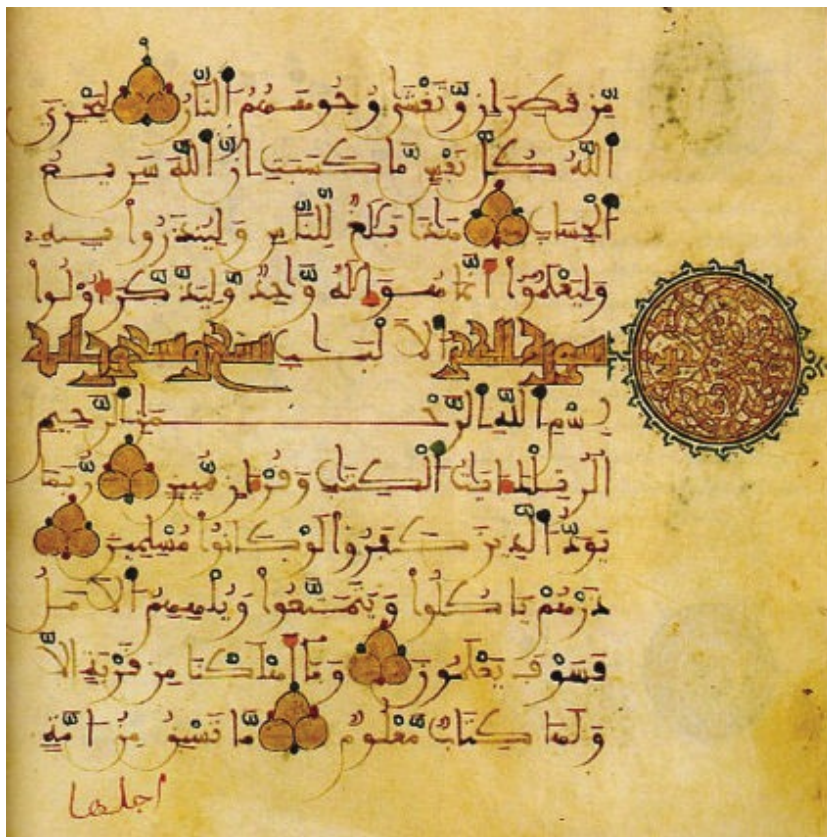 مِّن قَطِرَانٍ وَّتَغْشَىٰ وُجُوهَهُمُ النَّارُ لِيَجْزِيَ
اللَّهُ كُلَّ نَفْسٍ مَّا كَسَبَتْ إِنَّ اللَّهَ سَرِيعُ
الْحِسَابِ هَٰذَا بَلَٰغٌ لِّلنَّاسِ وَلِيُنذَرُوا بِهِ
وَلِيَعْلَمُوا أَنَّمَا هُوَ إِلَٰهٌ وَّاحِدٌ وَّلِيَذَّكَّرَ أُوْلُوا
سورة الحجر الْأَلْبَٰبِ تسع وتسعون اية
بِسْمِ اللَّهِ الرَّحْمَٰنِ الرَّحِيمِ
الٓر تِلْكَ ءَايَٰتُ الْكِتَٰبِ وَقُرْءَانٍ مُّبِينٍ رُّبَمَا
يَوَدُّ الَّذِينَ كَفَرُوا لَوْ كَانُوا مُسْلِمِينَ
ذَرْهُمْ يَأْكُلُوا وَيَتَمَتَّعُوا وَيُلْهِهِمُ الْأَمَلُ
فَسَوْفَ يَعْلَمُونَ وَمَا أَهْلَكْنَا مِن قَرْيَةٍ إِلَّا
وَلَهَا كِتَابٌ مَّعْلُومٌ مَّا تَسْبِقُ مِنْ أُمَّةٍ
اجلها